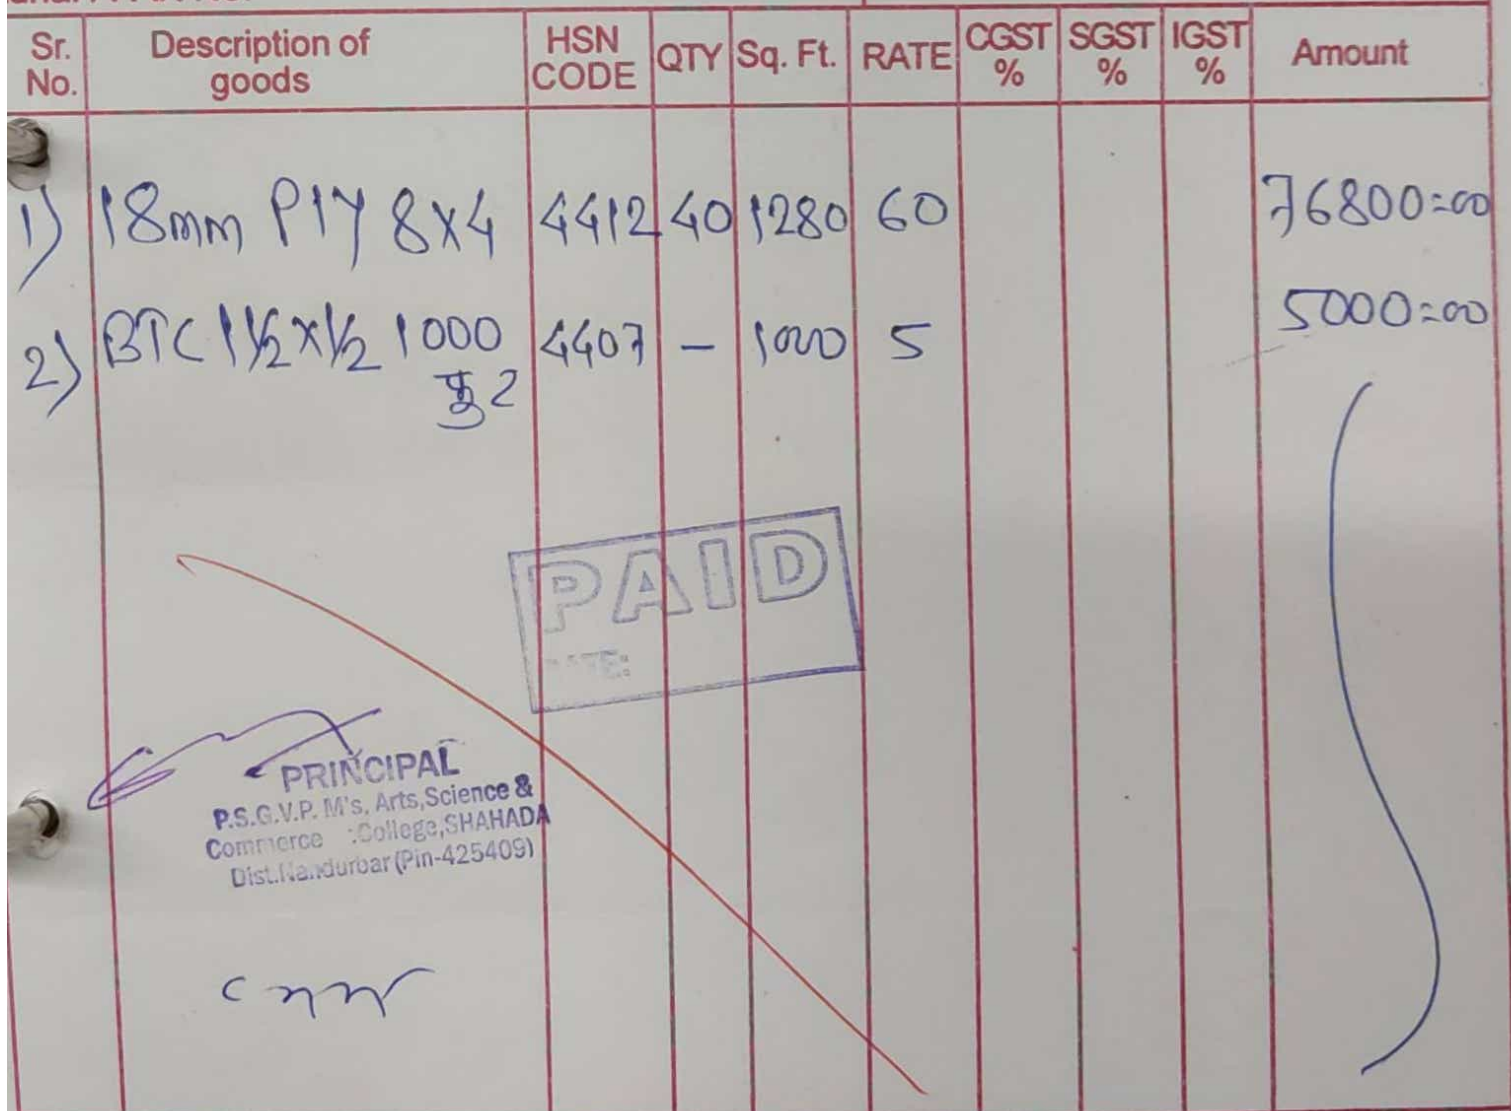 Sr. No. Description of goods HSN CODE QTY Sq. Ft. RATE CGST % SGST % IGST % Amount
1) 18mm PIY 8x4 4412 40 1280 60 76800=00
2) BTC 1 1/2 x 1/2 1000 4407 - 1000 5 5000=00
फुट
PAID
DATE:
PRINCIPAL
P.S.G.V.P. M's, Arts, Science &
Commerce :College, SHAHADA
Dist.Nandurbar (Pin-425409)